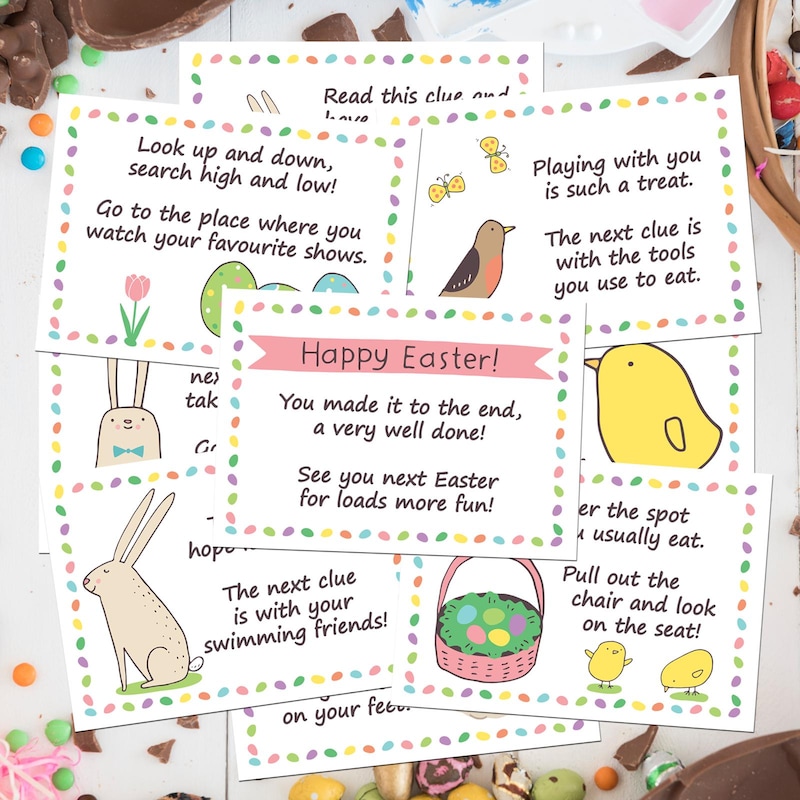 Read this clue and
have
Look up and down,
search high and low!
Go to the place where you
watch your favourite shows.
Playing with you
is such a treat.
The next clue is
with the tools
you use to eat.
Happy Easter!
You made it to the end,
a very well done!
See you next Easter
for loads more fun!
hope
The next clue
is with your
swimming friends!
the spot
usually eat.
Pull out the
chair and look
on the seat!
on your feet.